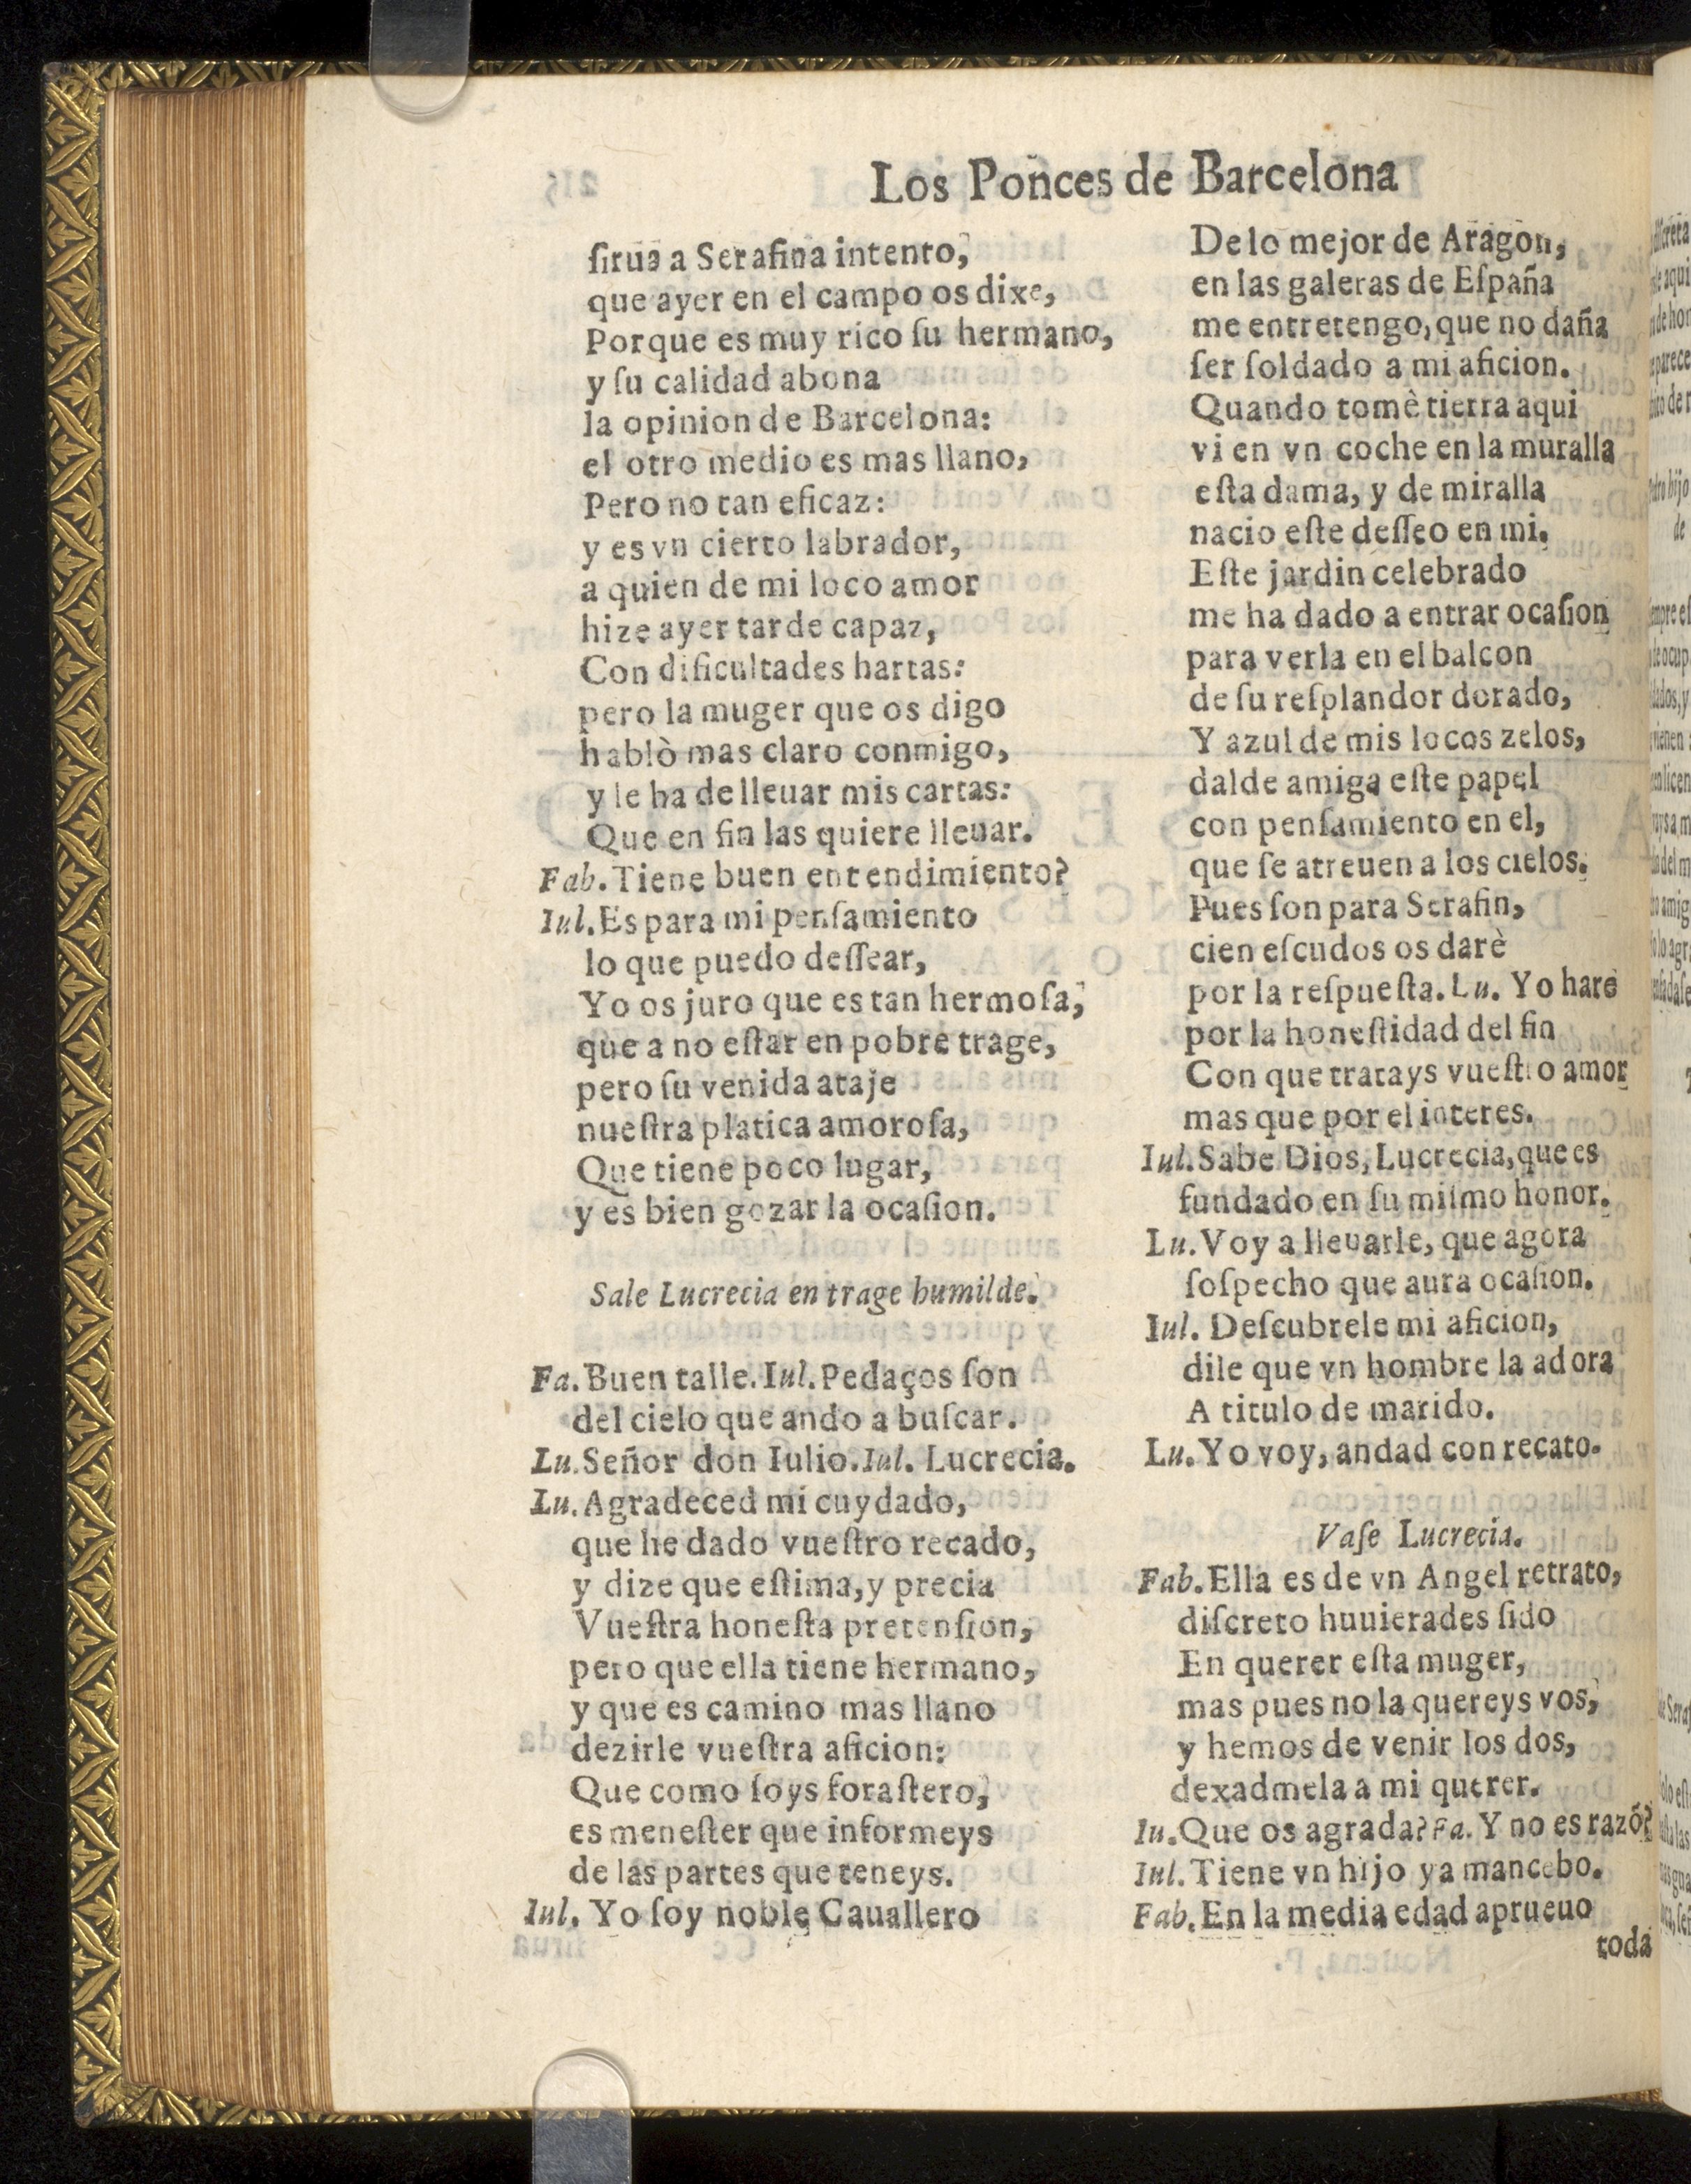 Los Ponces de Barcelona
ſirua a Serafina intento,
que ayer en el campo os dixe,
Porque es muy rico ſu hermano,
y ſu calidad abona
la opinion de Barcelona:
el otro medio es mas llano,
Pero no tan eficaz:
y es vn cierto labrador,
a quien de mi loco amor
hize ayer tarde capaz,
Con dificultades hartas:
pero la muger que os digo
hablò mas claro conmigo,
y le ha de lleuar mis cartas:
Que en fin las quiere lleuar.
Fab. Tiene buen entendimiento?
Iul. Es para mi penſamiento
lo que puedo deſſear,
Yo os juro que es tan hermoſa,
que a no eſtar en pobre trage,
pero ſu venida ataje
nueſtra platica amoroſa,
Que tiene poco lugar,
y es bien gozar la ocaſion.
Sale Lucrecia en trage humilde.
Fa. Buen talle. Iul. Pedaços ſon
del cielo que ando a buſcar.
Lu. Señor don Iulio. Iul. Lucrecia.
Lu. Agradeced mi cuydado,
que he dado vueſtro recado,
y dize que eſtima, y precia
Vueſtra honeſta pretenſion,
pero que ella tiene hermano,
y que es camino mas llano
dezirle vueſtra aficion:
Que como ſoys foraſtero,
es meneſter que informeys
de las partes que teneys.
Iul. Yo ſoy noble Cauallero
De lo mejor de Aragon,
en las galeras de Eſpaña
me entretengo, que no daña
ſer ſoldado a mi aficion.
Quando tomè tierra aqui
vi en vn coche en la muralla
eſta dama, y de miralla
nacio eſte deſſeo en mi.
Eſte jardin celebrado
me ha dado a entrar ocaſion
para verla en el balcon
de ſu reſplandor dorado,
Y azul de mis locos zelos,
dalde amiga eſte papel
con penſamiento en el,
que ſe atreuen a los cielos.
Pues ſon para Serafin,
cien eſcudos os darè
por la reſpueſta. Lu. Yo harè
por la honeſtidad del fin
Con que tratays vueſtro amor
mas que por el interes.
Iul. Sabe Dios, Lucrecia, que es
fundado en ſu miſmo honor.
Lu. Voy a lleuarle, que agora
ſoſpecho que aura ocaſion.
Iul. Deſcubrele mi aficion,
dile que vn hombre la adora
A titulo de marido.
Lu. Yo voy, andad con recato.
Vaſe Lucrecia.
Fab. Ella es de vn Angel retrato,
diſcreto huuierades ſido
En querer eſta muger,
mas pues no la quereys vos,
y hemos de venir los dos,
dexadmela a mi querer.
Iu. Que os agrada? Fa. Y no es razõ?
Iul. Tiene vn hijo ya mancebo.
Fab. En la media edad aprueuo
toda